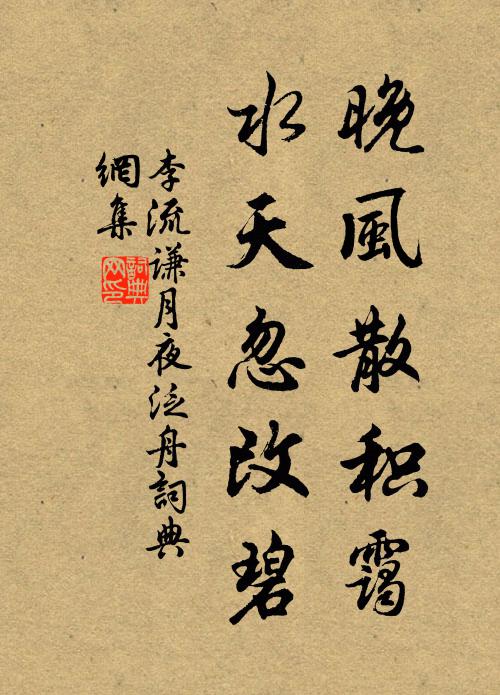 晚風散积靄
水天忽改碧
李流谦月夜泛舟詞典
網集
詞典網印